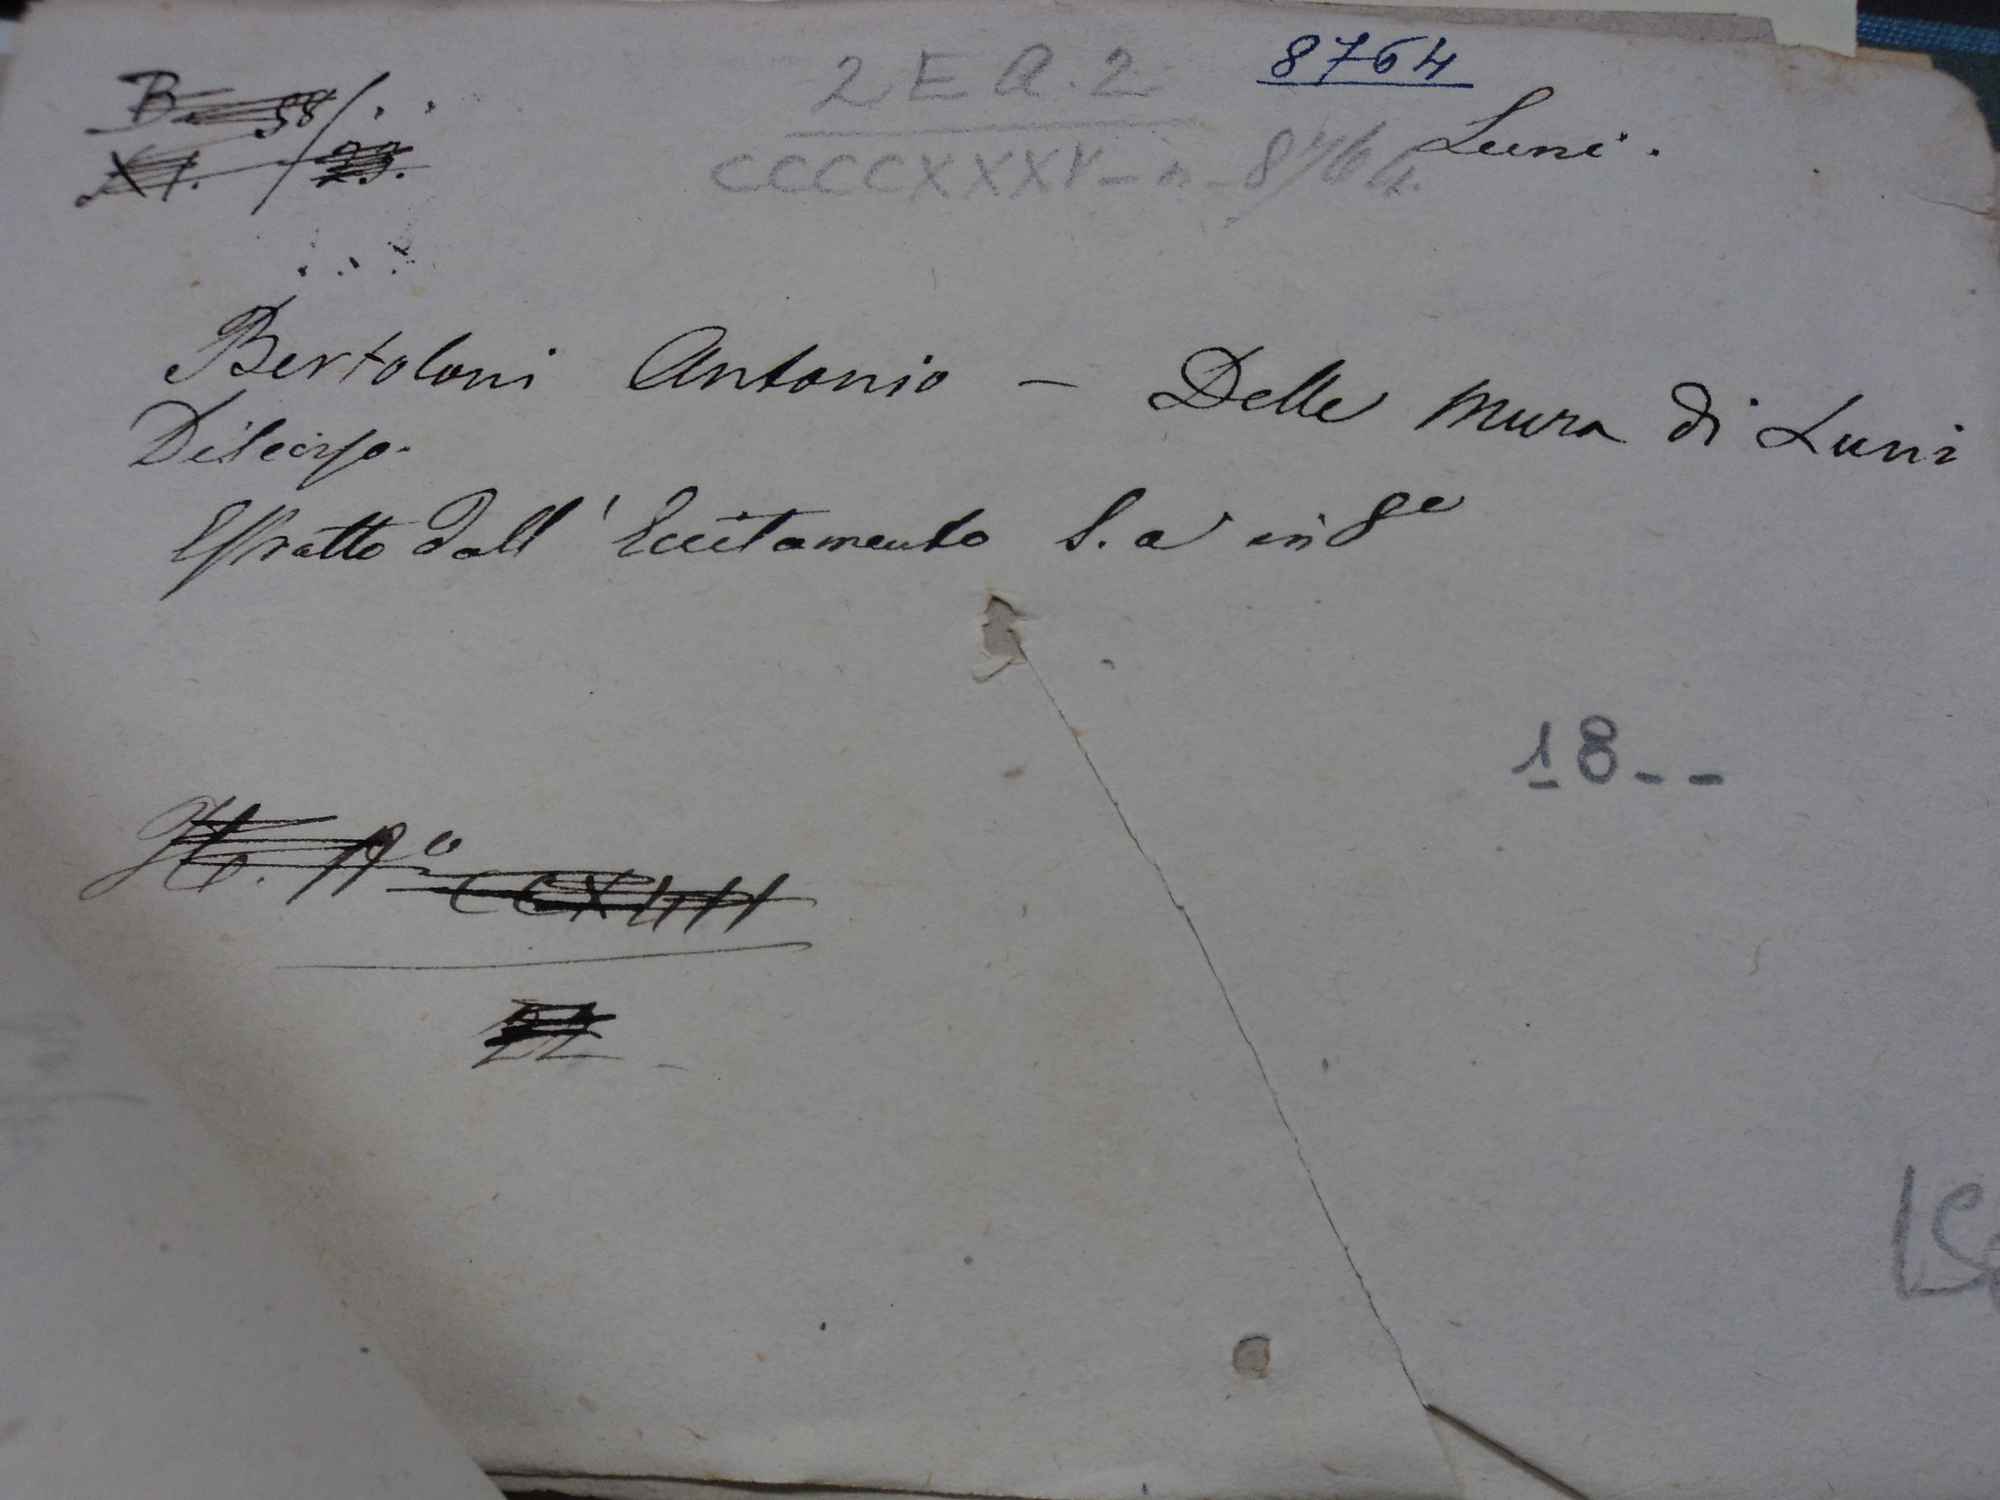 8764
2 E A. 2
CCCCXXXV - n - 8764.
Luni.
B 58/
XI. / 23.
Bertoloni Antonio - Delle Mura di Luni
Discorso.
Estratto dall' Eccitamento S.a in 8e
18--
No
CCXLIII
22